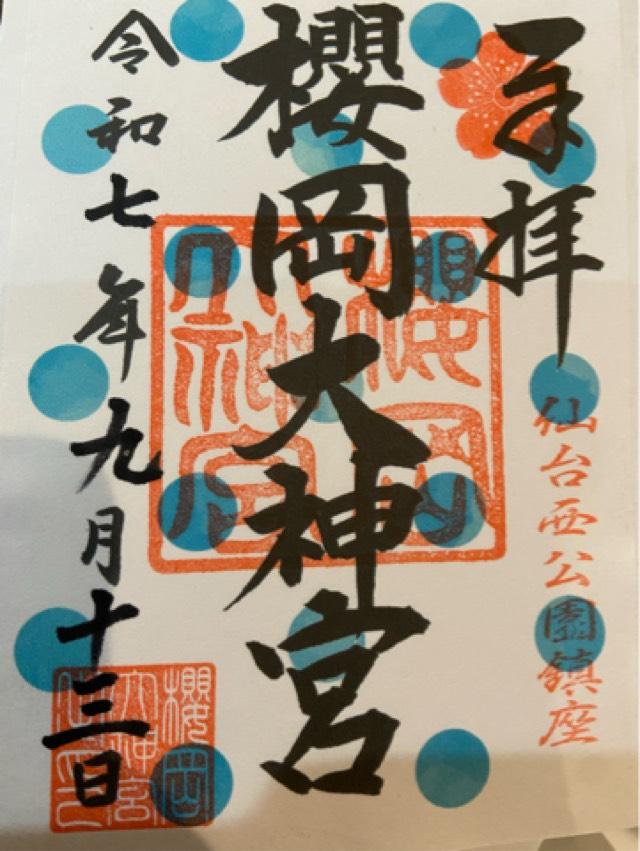 奉拝
仙台西公園鎮座
櫻岡大神宮
櫻岡
大神宮
令和七年九月十三日
櫻岡
大神宮